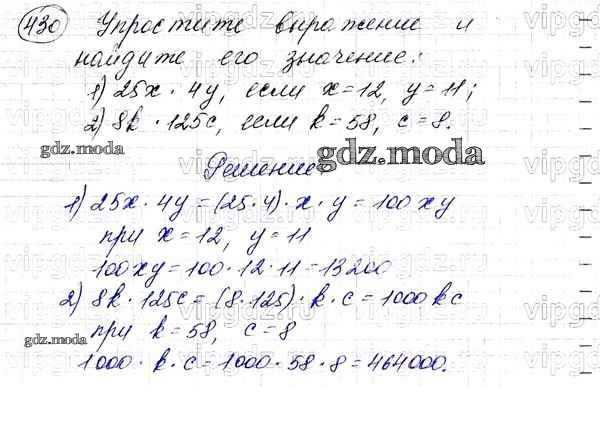 430 Упростите выражение и
найдите его значение:
1) 25x · 4y, если x=12, y=11;
2) 8k · 125c, если k=58, c=8.
gdz.moda
gdz.moda
Решение
1) 25x · 4y = (25·4) · x · y = 100xy
при x=12, y=11
100xy = 100 · 12 · 11 = 13200
2) 8k · 125c = (8·125) · k · c = 1000kc
при k=58, c=8
gdz.moda
1000 · k · c = 1000 · 58 · 8 = 464000.